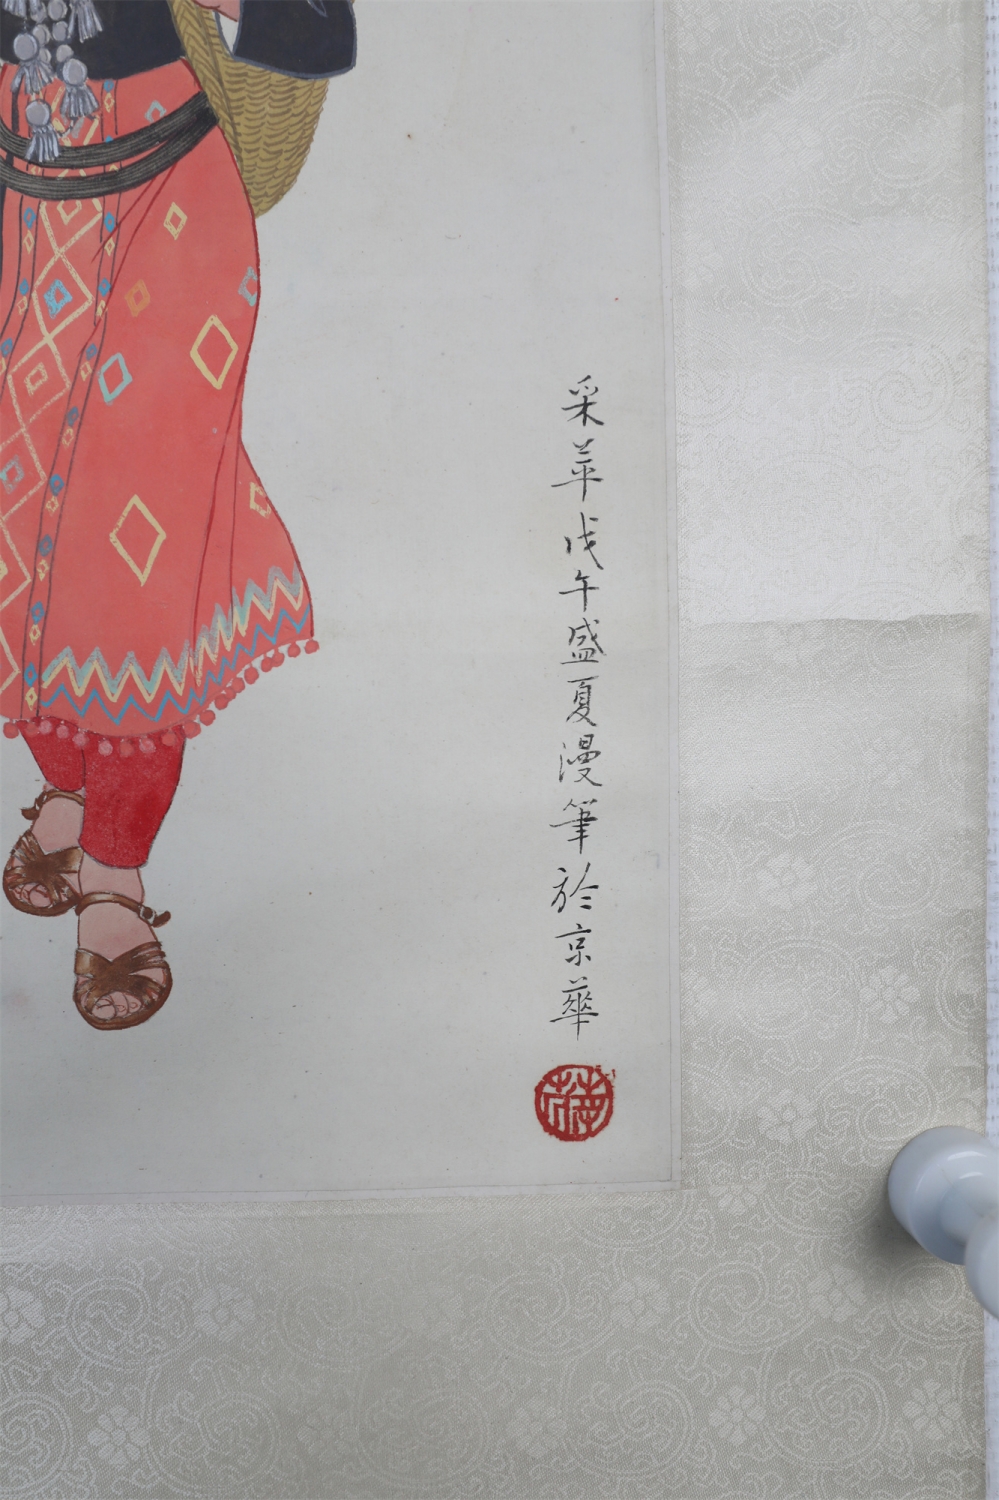 采苹戊午盛夏漫筆於京華